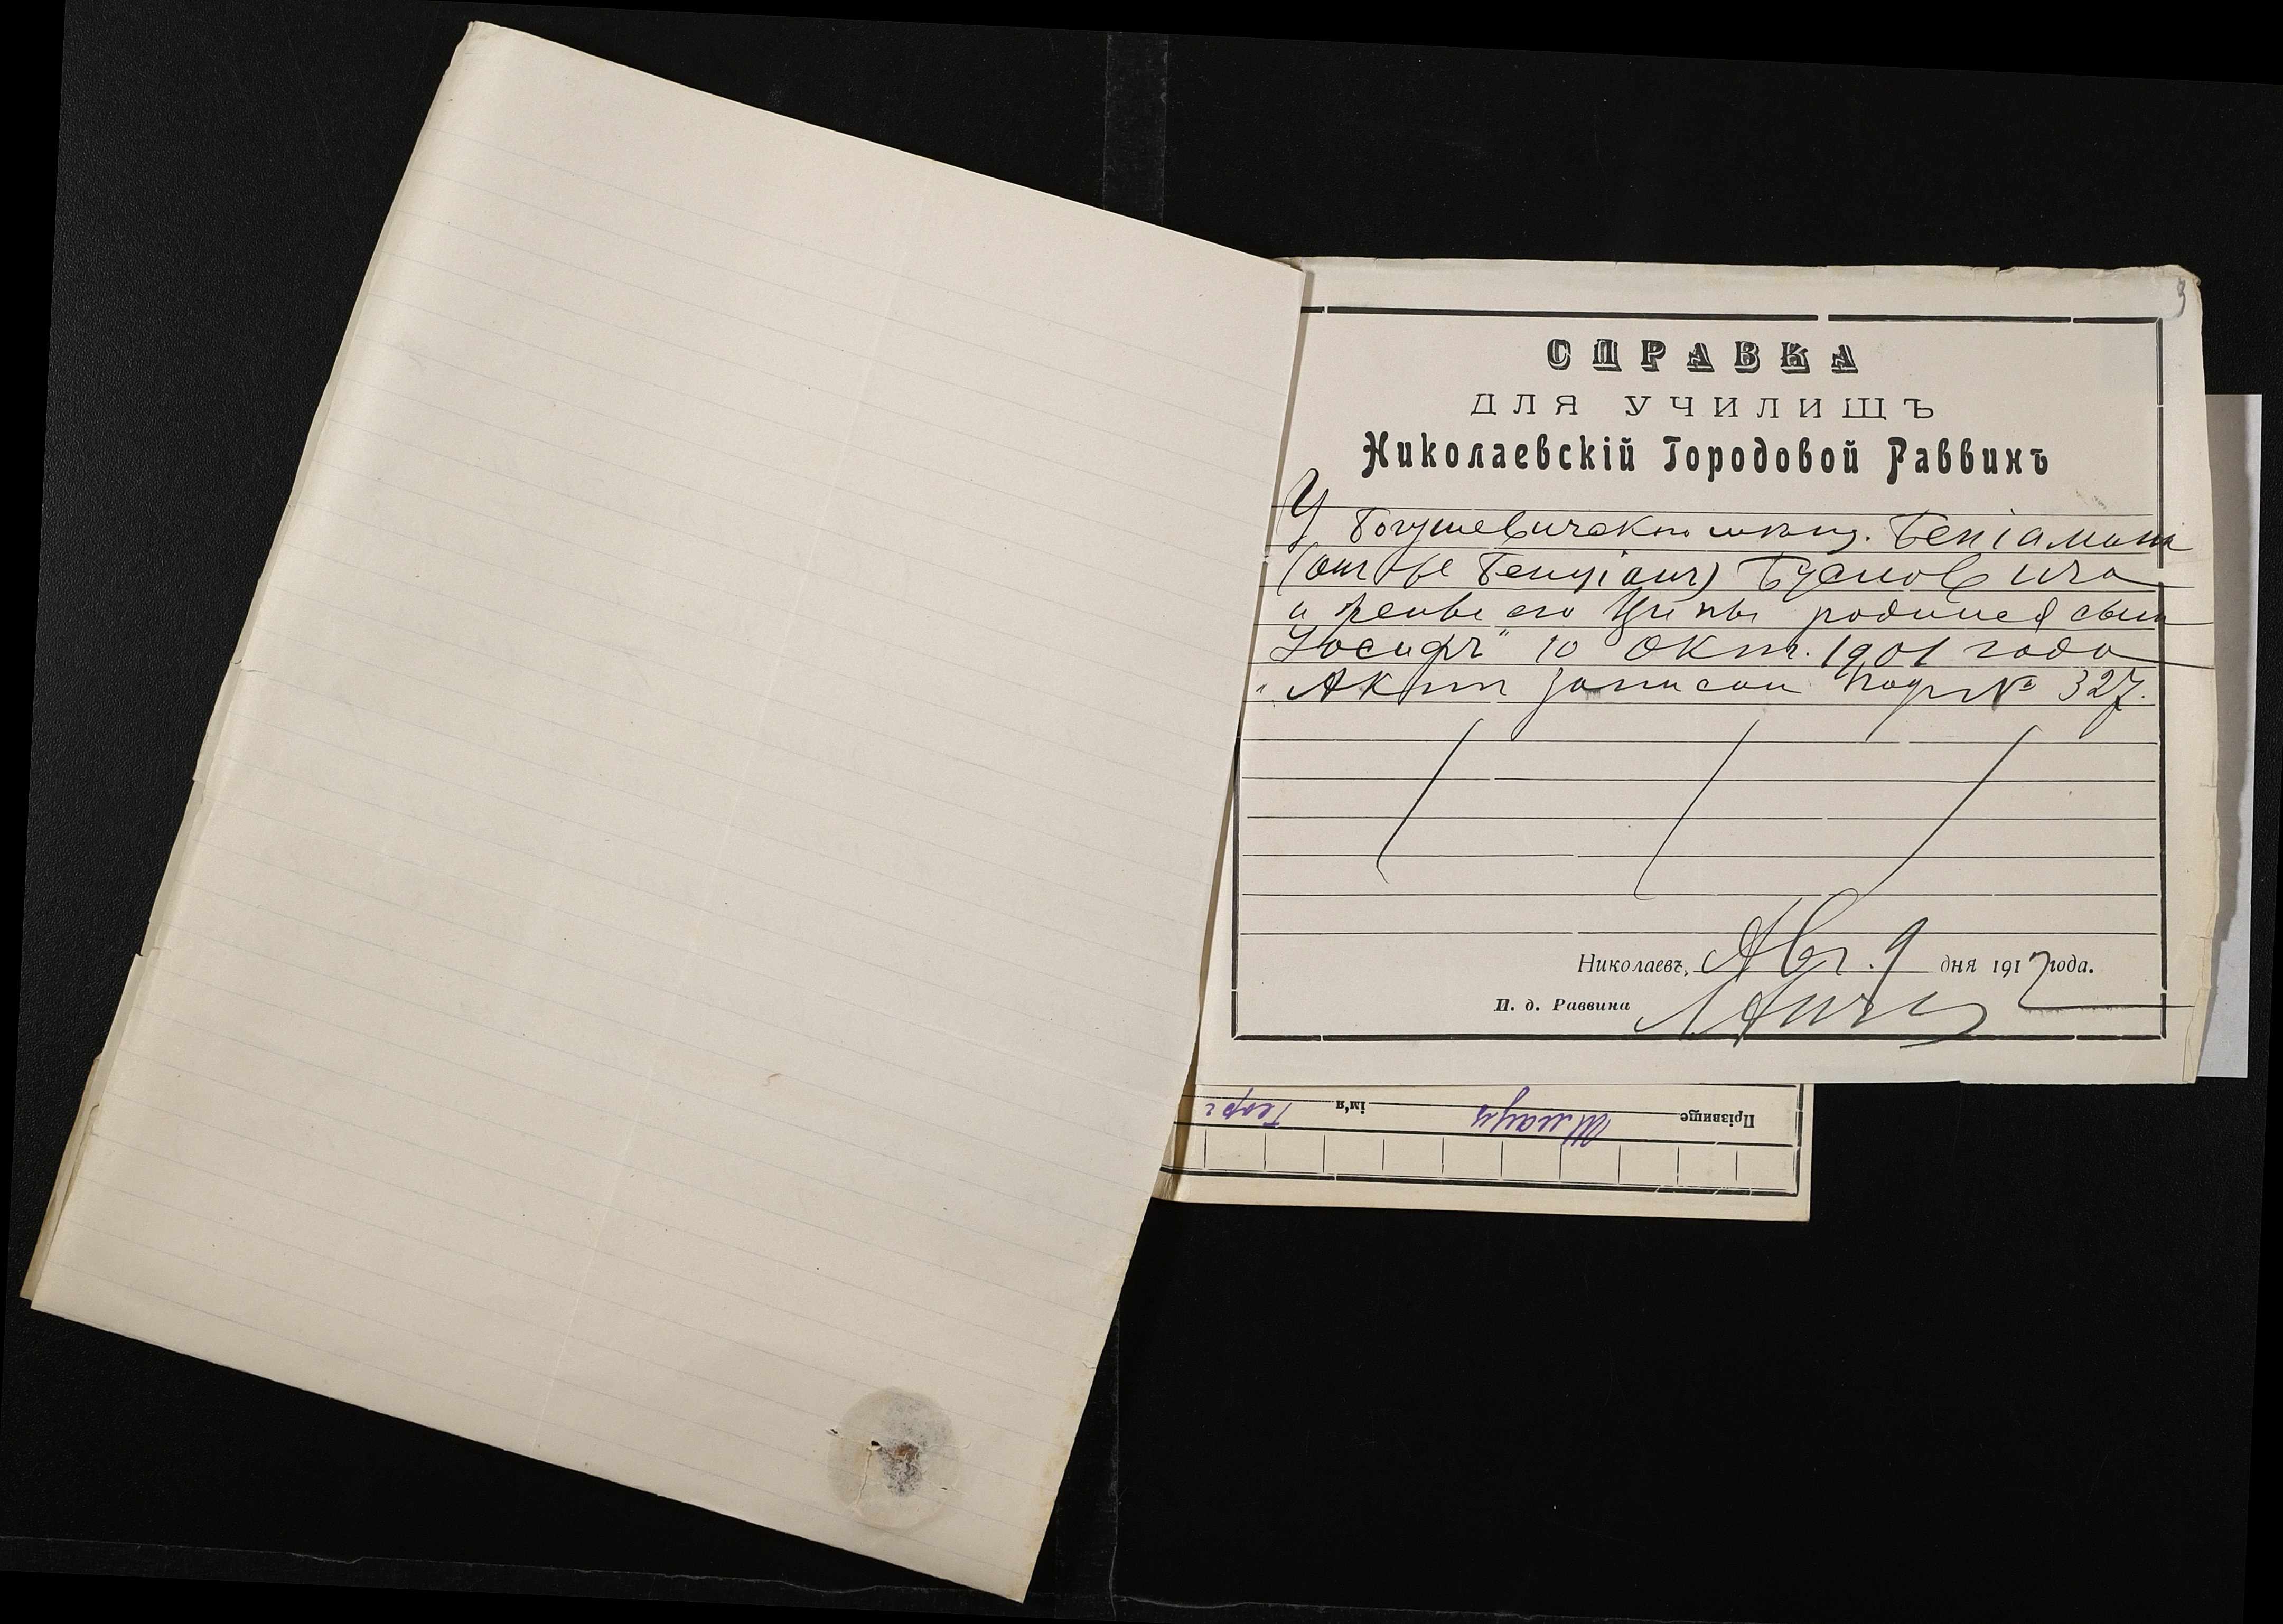 СПРАВКА
ДЛЯ УЧИЛИЩЪ
Николаевскій Городовой Раввинъ
У Богушевичскаго мѣщ. Беніамина
(онъ же Бенціонъ) Бусловича
и жены его Ципы родился сынъ
"Іосифъ" 10 Окт. 1901 года
Актъ записанъ подъ № 327.
Николаевъ, Авг. 9 дня 1917 года.
И. д. Раввина
Прізвище Шмаун ім'я Георг